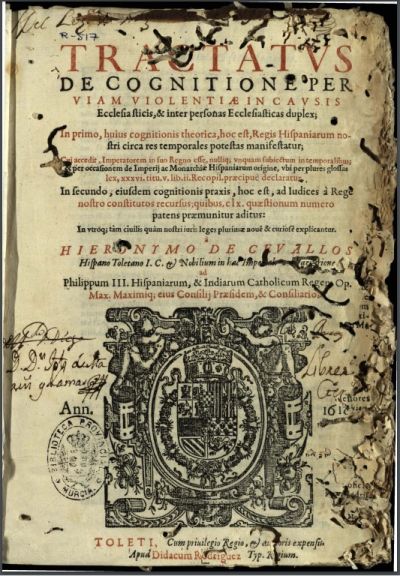 R-817
TRACTATVS
DE COGNITIONE PER
VIAM VIOLENTIÆ IN CAVSIS
Ecclesiasticis, & inter personas Ecclesiasticas duplex;
In primo, huius cognitionis theorica, hoc est, Regis Hispaniarum no-
stri circa res temporales potestas manifestatur;
Cui accedit, Imperatorem in suo Regno esse, nulliq; vnquam subiectum in temporalibus,
& per occasionem de Imperij ac Monarchiæ Hispaniarum origine, vbi per plures glossas
lex, xxxvi. titu. v. lib. ii. Recopil. præcipuè declaratur.
In secundo, eiusdem cognitionis praxis, hoc est, ad Iudices à Rege
nostro constitutos recursus; quibus, clx. quæstionum numero
patens præmunitur aditus:
In vtroq; tàm ciuilis quàm nostri iuris leges plurimæ nouè & curiosè explicantur.
HIERONYMO DE CEVALLOS
Hispano Toletano I. C. & Nobilium in hac Imperiali
ad
Philippum III. Hispaniarum, & Indiarum Catholicum Regem Op.
Max. Maximiq; eius Consilij Præsidem, & Consiliarios.
Ann.
BIBLIOTECA
MURCIA
TOLETI, Cum priuilegio Regio, & auctoris expensis
Apud Didacum Rodriguez Typ. Regium.